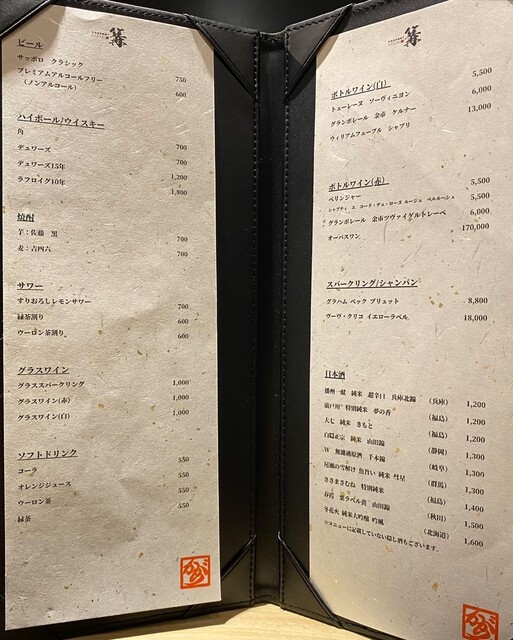 ビール
サッポロ クラシック 750
プレミアムアルコールフリー 600
(ノンアルコール)
ハイボール/ウイスキー
角 700
デュワーズ 700
デュワーズ15年 1,200
ラフロイグ10年 1,800
焼酎
芋:佐藤 黒 700
麦:吉四六 700
サワー
すりおろしレモンサワー 700
緑茶割り 600
ウーロン茶割り 600
グラスワイン
グラススパークリング 1,000
グラスワイン(赤) 1,000
グラスワイン(白) 1,000
ソフトドリンク
コーラ 550
オレンジジュース 550
ウーロン茶 550
緑茶
篝
ボトルワイン(白)
トゥーレーヌ ソーヴィニヨン 5,500
グランポレール 余市 ケルナー 6,000
ウィリアムフェーブル シャブリ 13,000
ボトルワイン(赤)
ベリンジャー 5,500
シャプティエ コート・デュ・ローヌ ルージュ ベルルーシュ 5,500
グランポレール 余市ツヴァイゲルトレーベ 6,000
オーパスワン 170,000
スパークリング/シャンパン
グラハム ベック ブリュット 8,800
ヴーヴ・クリコ イエローラベル 18,000
日本酒
播州一献 純米 超辛口 兵庫北錦 (兵庫) 1,200
廣戸川 特別純米 夢の香 (福島) 1,200
大七 純米 きもと (福島) 1,200
白隠正宗 純米 山田錦 (静岡) 1,300
W 無濾過原酒 (岐阜) 1,300
尾瀬の雪解け 魚旨い 純米 彗星 (群馬) 1,300
ささまさむね 特別純米 (福島) 1,400
春霞 栗ラベル黄 山田錦 (秋田) 1,500
冬花火 純米大吟醸 吟風 (北海道) 1,600
※メニューに記載していない隠し酒もございます。
かがり
かがり